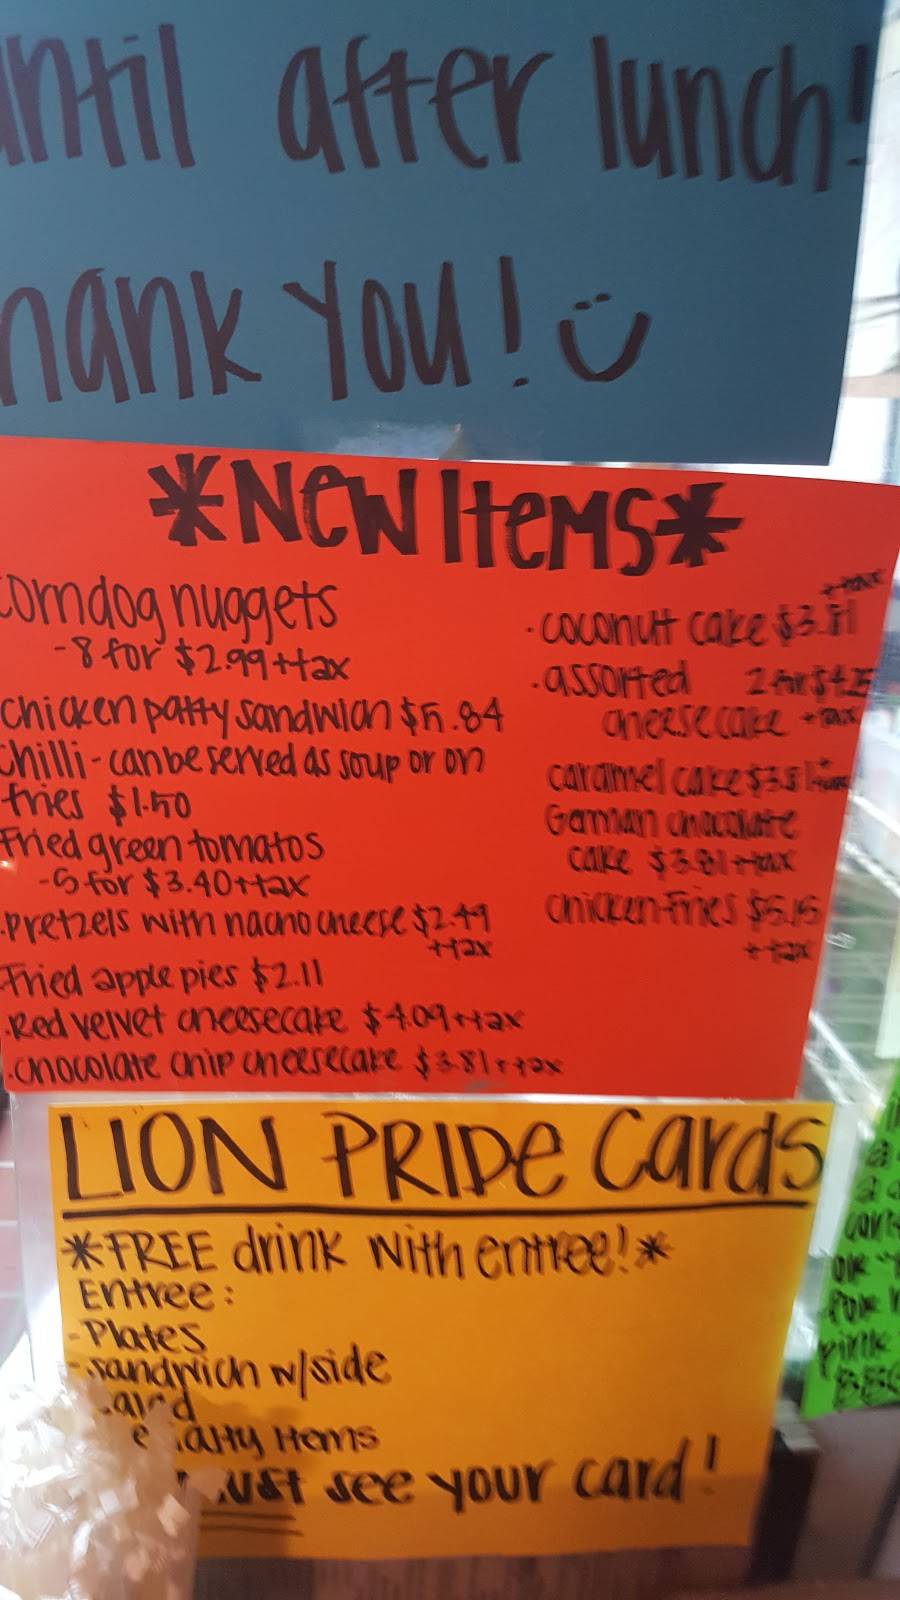 until after lunch!
hank You!
*New Items*
corndog nuggets
-8 for $2.99+tax
chicken patty sandwich $5.84
chilli - can be served as soup or on
fries $1.50
Fried green tomatos
-5 for $3.40+tax
.pretzels with nacho cheese $2.49
+tax
Fried apple pies $2.11
.Red velvet cheesecake $4.09+tax
.chocolate chip cheesecake $3.81+tax
+tax
.coconut cake $3.81
.assorted 2 for $4.25
cheesecake +tax
caramel cake $3.81+tax
German chocolate
cake $3.81+tax
chicken-fries $5.15
+tax
LION PRIDe Cards
*FREE drink with entree!*
Entree:
-Plates
-sandwich w/side
Items
must see your card!
pink